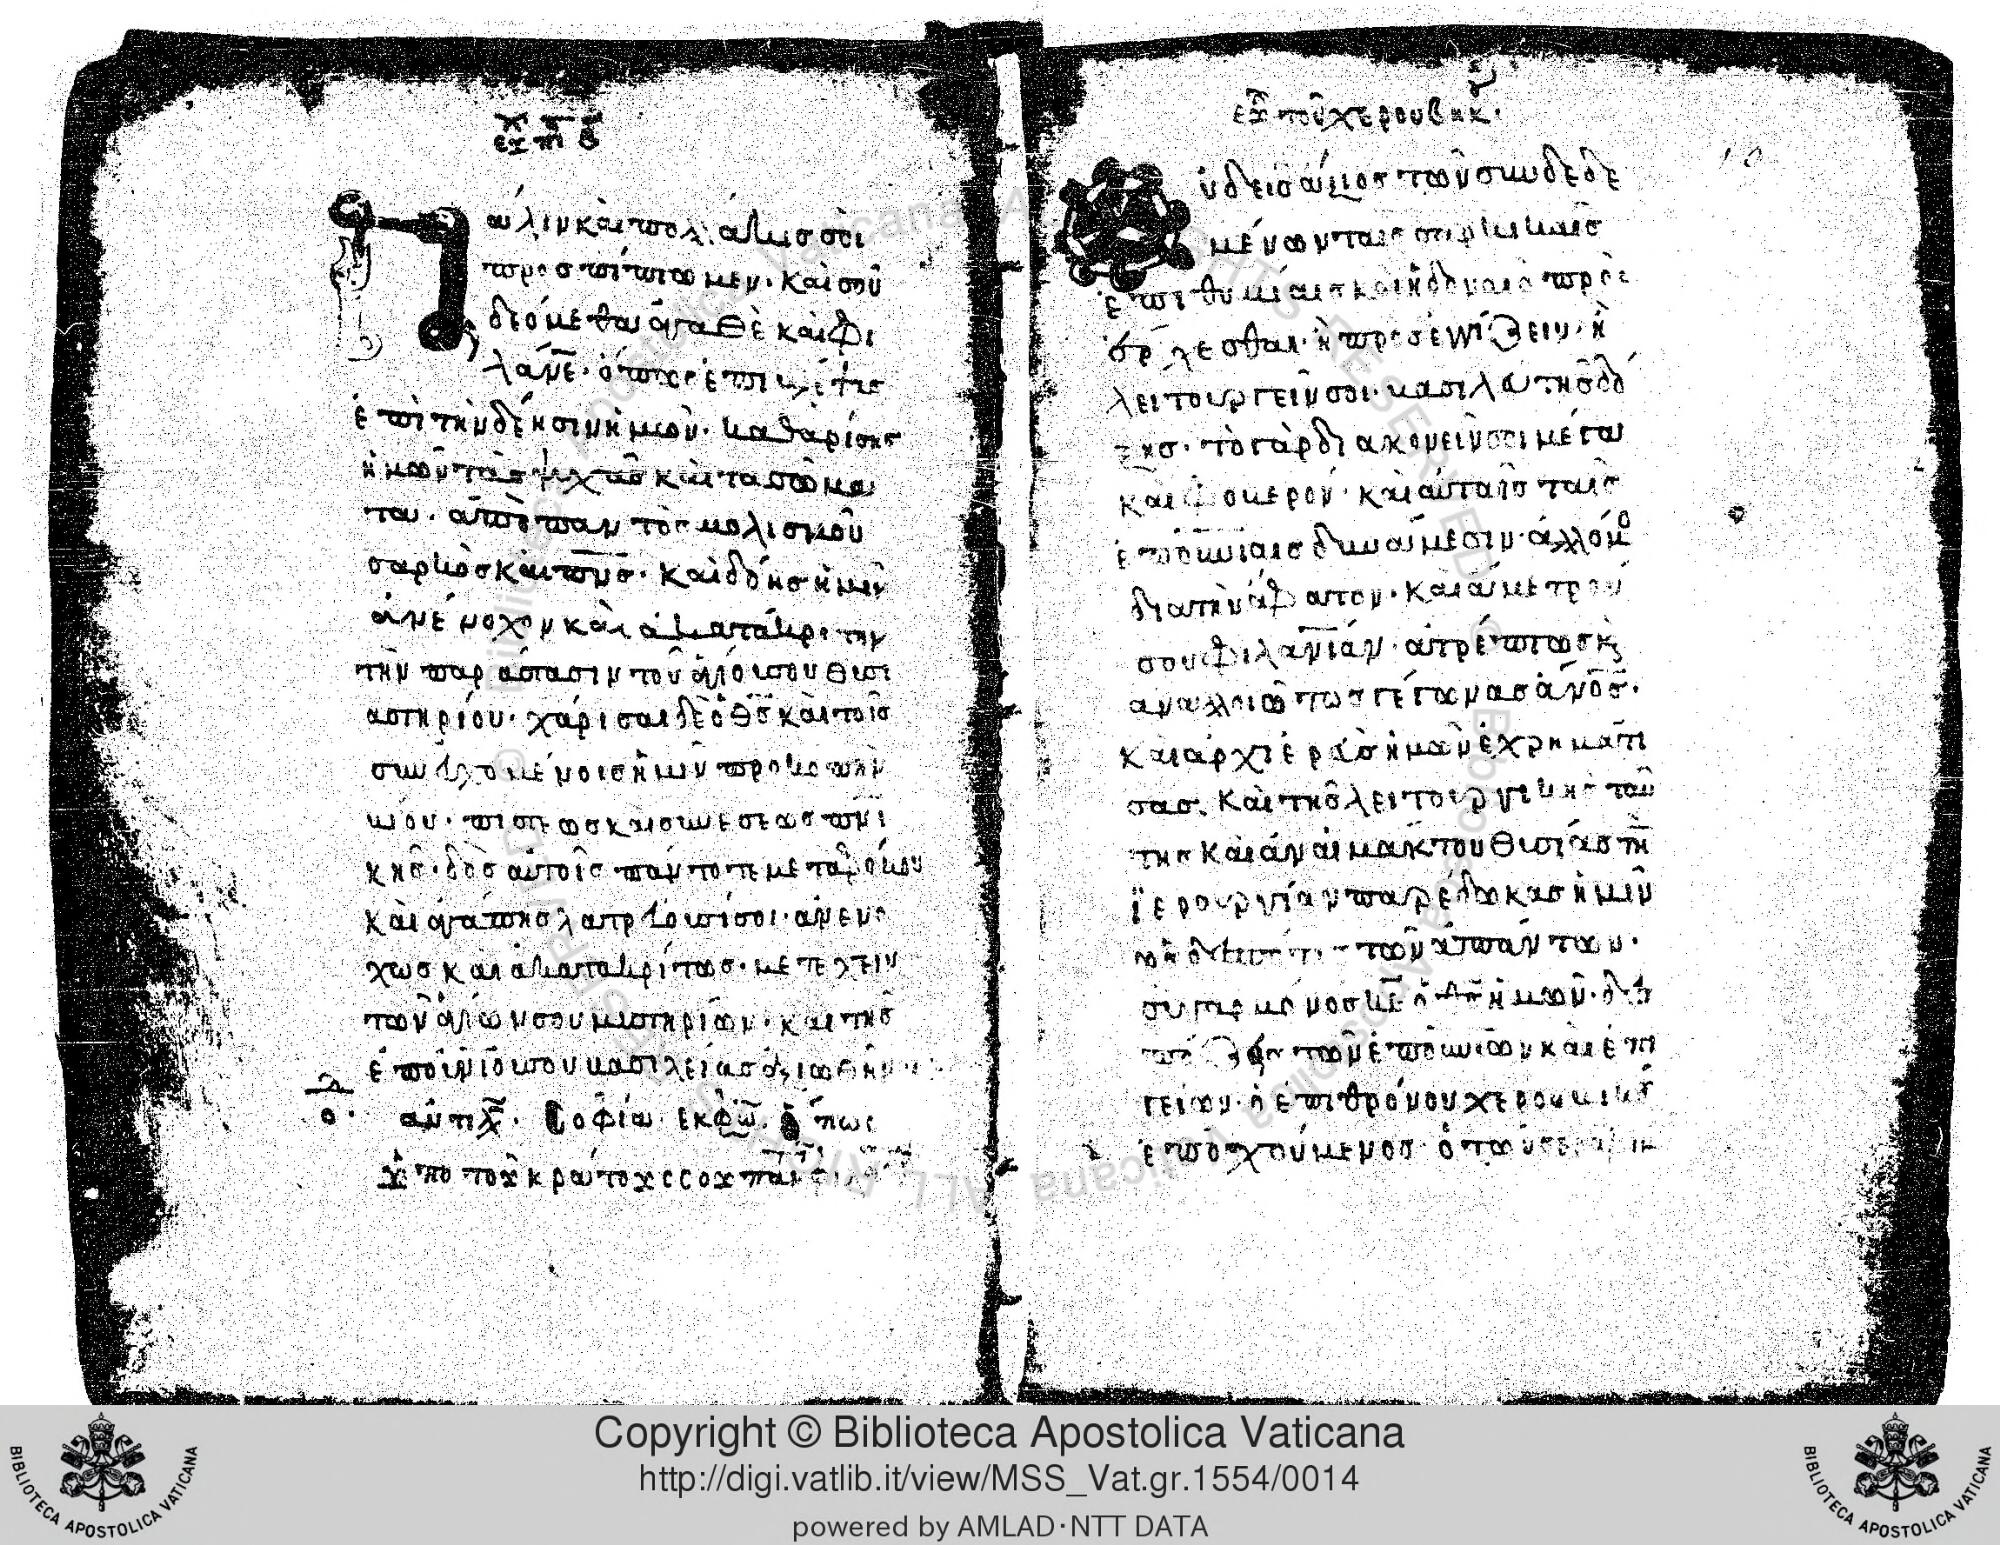 εχ πι β
άλιν και πολλάκις σοι
προσπίπτωμεν· και σοῦ
δεόμεθα ἀγαθὲ και φι
λάνε· ὅπως ἐπιβλέψας
ἐπι την δέησιν ἡμῶν· καθαρίσης
ἡμῶν τὰς ψυχὰς και τα σώμα
τα· ἀπὸ παντὸς μολισμοῦ
σαρκὸς και πνς· και δόης ἡμῖν
ἀνένοχον και ἀκατάκριτην
τὴν παράστασιν τοῦ ἁγίου σου θισι
αστηρίου· χάρισαι δὲ ὁ θς και τοῖς
συνευχομένοις ἡμῖν προκοπὴν
βίου· πίστεως και συνέσεως πνι
κῆς· δὸς αὐτοῖς πάντοτε μετα φόβου
και ἀγάπης λατρεύειν σοι· ἀνενό
χως και ἀκατακρίτως· μετέχειν
τῶν ἁγίων σου μιστηρίων· και τῆς
ἐπουνίου σου βασιλείας ἀξιωθῆν
ο· ἀντιχ· Σοφία· εκφω· ὅπως
ὑπο τοῦ κράτους σου παν
εχ τοῦ χερουβικ·
υδεις ἄξιος τῶν συνδεδε
μένων ταις σαρκικαις
ἐπιθυμίαις και ἡδοναις προς
έρχεσθαι· ἢ προσεγγίζειν· ἢ
λειτουργεῖν σοι· βασιλευ τῆς δό
ξης· τὸ γὰρ διακονεῖν σοι μέγα
και φοβερόν· και αὐταῖς ταις
ἐπουνίαις δυνάμεσιν· ἀλλόμ
δια την ἄφατον· και ἀμετρον
σου φιλανίαν· ατρέπτως κ
αναλλοιώτως γέγωνας ἄνος·
και ἀρχιερεὺς ἡμῶν ἐχρημάτι
σας· και τῆς λειτουργικῆς ταύ
της και ἀναιμάκτου θισίας τὴ
ἱερουργίαν παρέδωκας ἡμῖν
ὡς δεσπότης τῶν ἁπάντων·
συ γαρ μόνος κε ὁ θς ἡμῶν· δεσ
πόζεις τῶν ἐπουνίων και ἐπι
γείων· ὁ ἐπι θρόνου χερουβικοῦ
ἐποχούμενος· ὁ τῶν σεραφιμ
Copyright © Biblioteca Apostolica Vaticana
http://digi.vatlib.it/view/MSS_Vat.gr.1554/0014
powered by AMLAD·NTT DATA
BIBLIOTECA APOSTOLICA VATICANA
BIBLIOTECA APOSTOLICA VATICANA